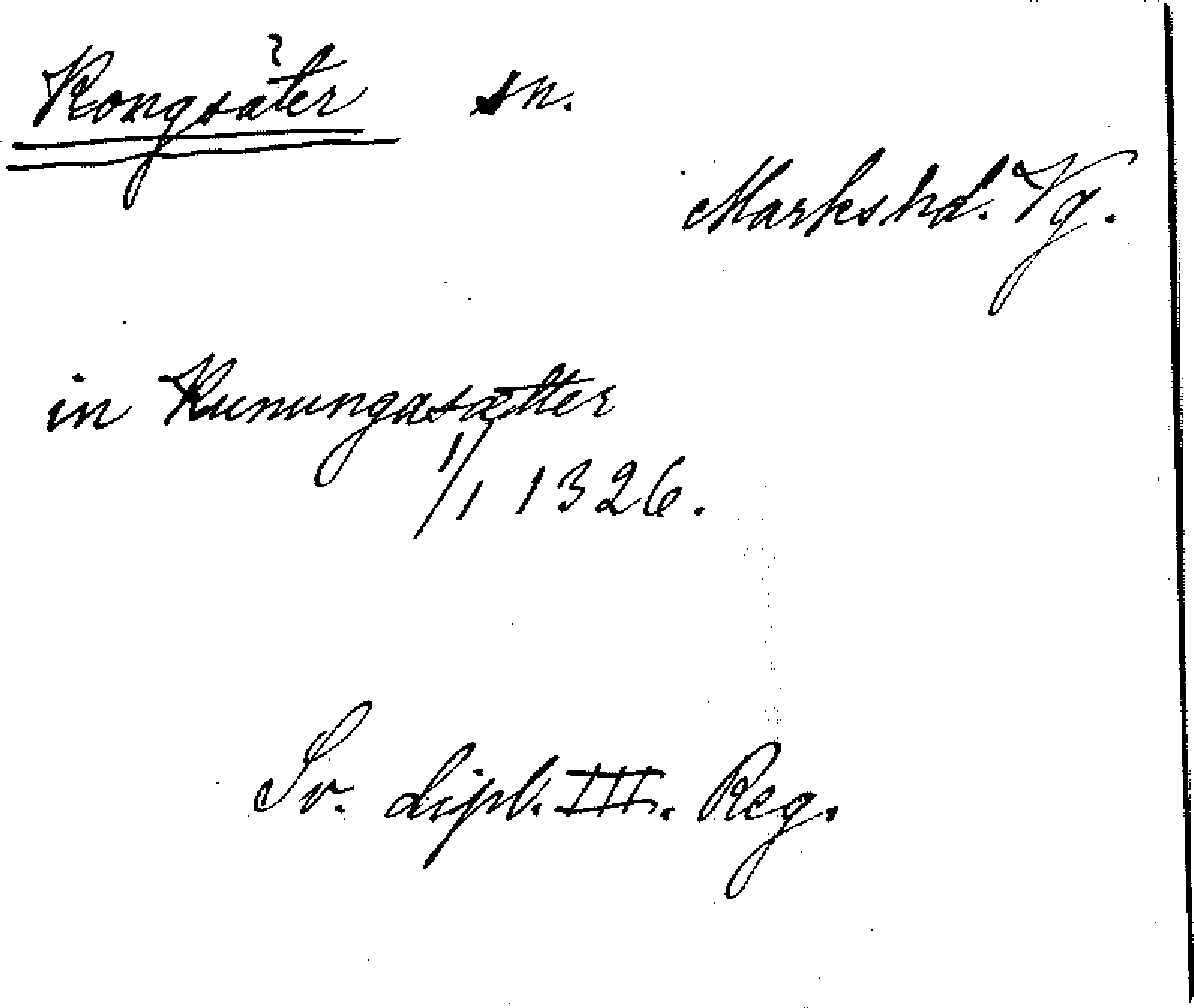 Kongsäter sn.
Markshd. Vg.
in Kunungasætter
1/1 1326.
Sv. dipl. III. Reg.